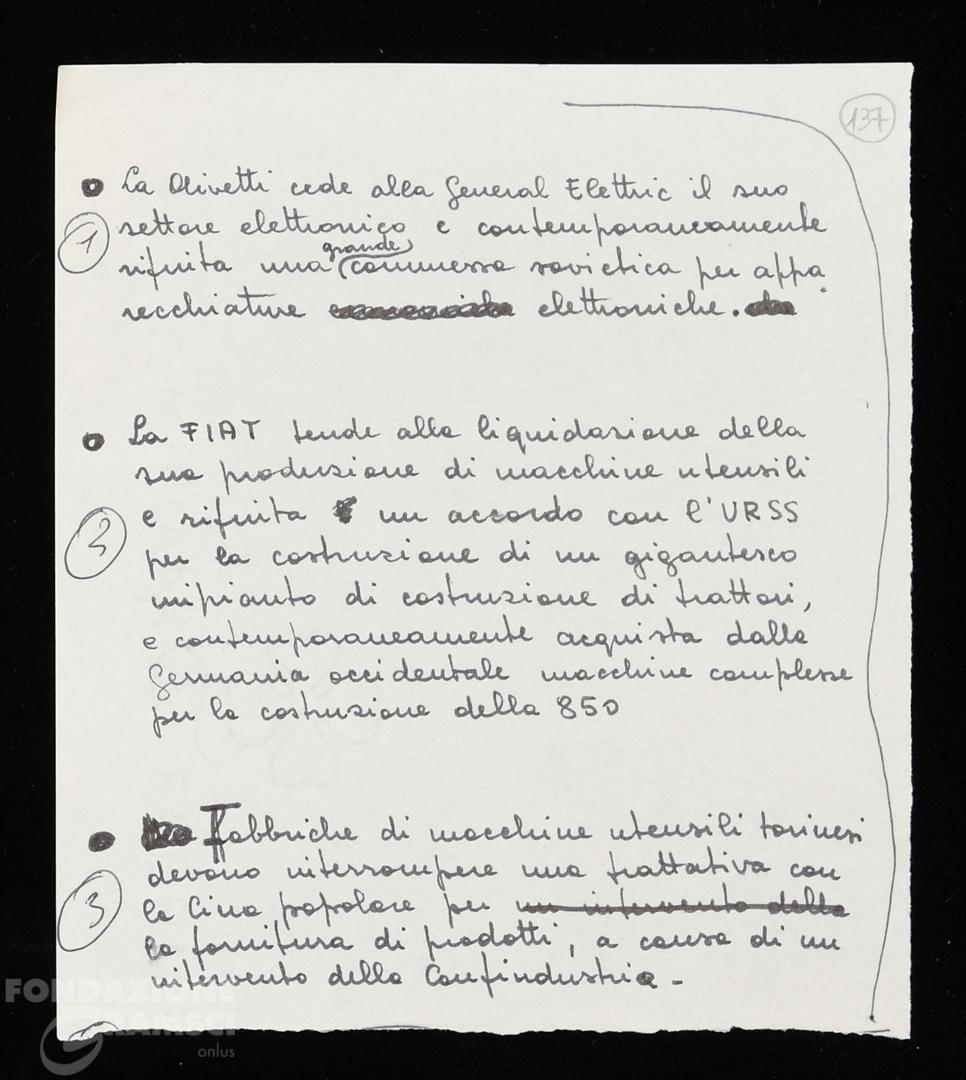 137
La Olivetti cede alla General Elettric il suo
1
settore elettronico e contemporaneamente
grande
rifiuta una commessa sovietica per appa
recchiature elettroniche.
La FIAT tende alla liquidazione della
sua produzione di macchine utensili
2
e rifiuta un accordo con l'URSS
per la costruzione di un gigantesco
impianto di costruzione di trattori,
e contemporaneamente acquista dalla
Germania occidentale macchine complesse
per la costruzione della 850
Fabbriche di macchine utensili torinesi
devono interrompere una trattativa con
3
la Cina popolare per un intervento della
la fornitura di prodotti, a causa di un
intervento della Confindustria -
FONDAZIONE
GRAMSCI
onlus